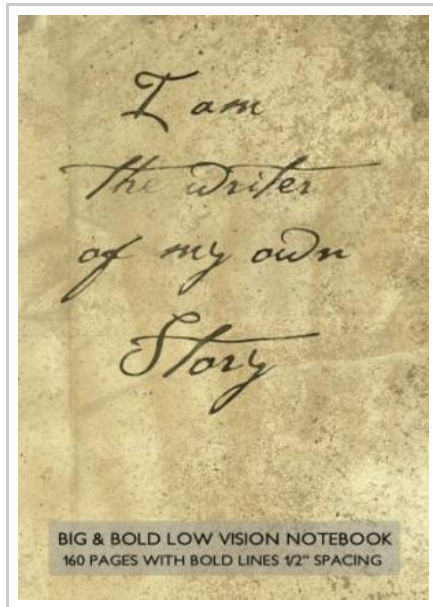 I am
the writer
of my own
Story
BIG & BOLD LOW VISION NOTEBOOK
160 PAGES WITH BOLD LINES 1/2" SPACING